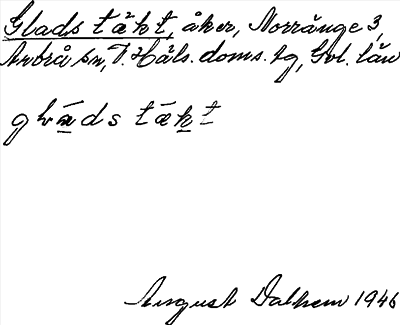 Glads täkt, åker, Norränge 3,
Arbrå sn, N. Häls. doms. tg, Gvl. län
täkt
August Dalhem 1946